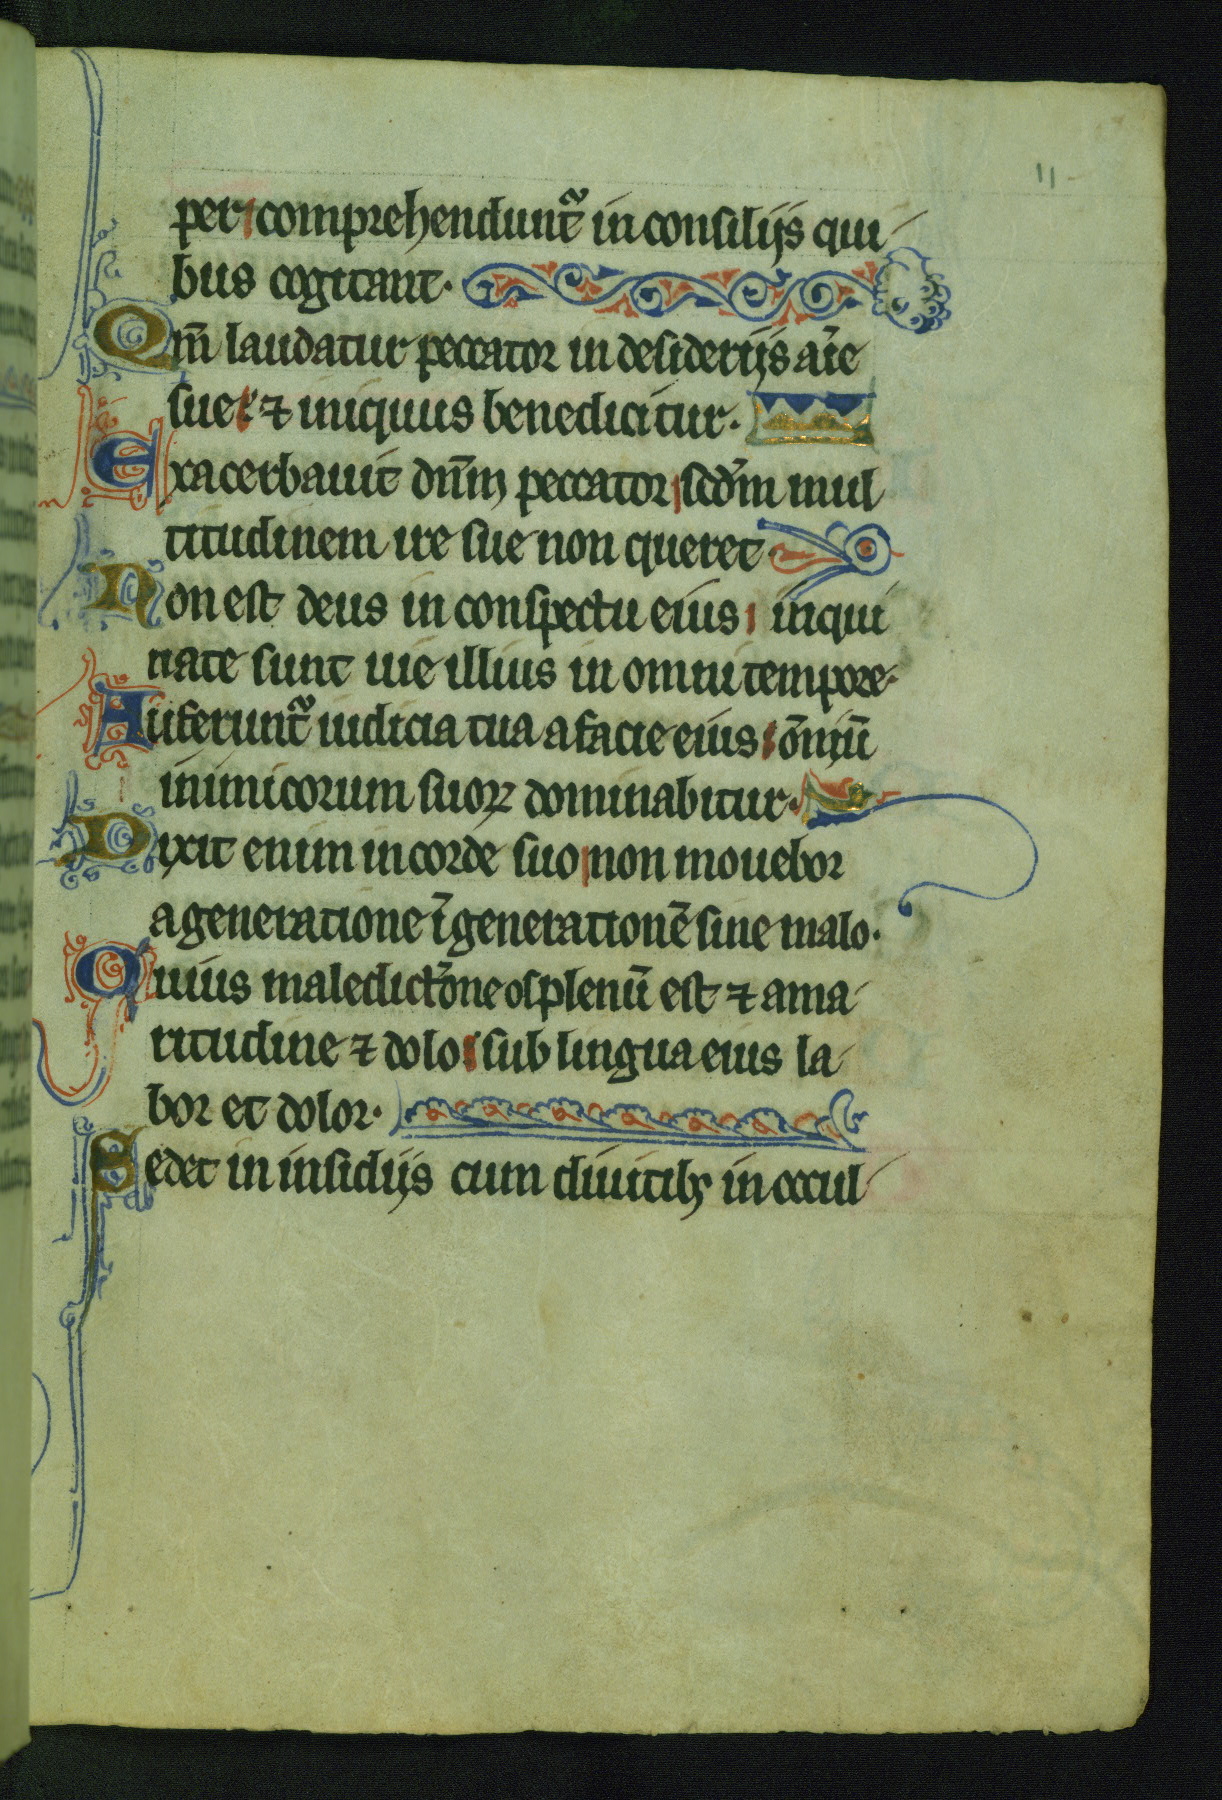 11
per comprehendunt᷑ in consilijs qui
bus cogitant.
Qm̅ laudatur peccator in desiderijs aı̅e
sue ⁊ iniquus benedicitur.
Exacerbauit dn̅m peccator scd̅m mul
titudinem ire sue non queret
Non est deus in conspectu eius inqui
nate sunt uie illius in omni tempore.
Auferunt᷑ iudicia tua a facie eius om̅iu̅
inimicorum suoꝝ dominabitur.
Dixit enim in corde suo non mouebor
a generatione ı̅ generatione̅ sine malo.
Quius maledict̅one os plenu̅ est ⁊ ama
ritudine ⁊ dolo sub lingua eius la
bor et dolor.
Sedet in insidijs cum diuitibꝫ in occul